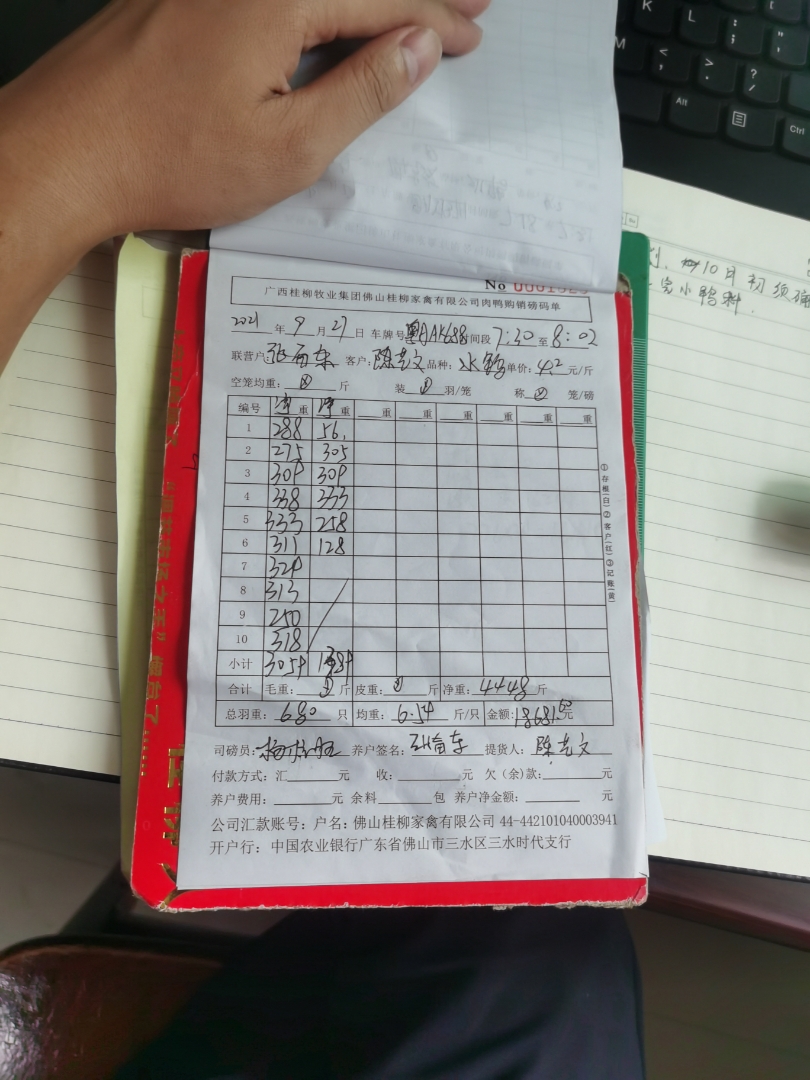 No 0001325
广西桂柳牧业集团佛山桂柳家禽有限公司肉鸭购销磅码单
2021 年 9 月 27 日 车牌号 粤AAK688 间段 7:30 至 8:02
联营户: 客户: 陈艺文 品种: 水鸭 单价: 4.2 元/斤
空笼均重: ② 斤 装 ① 羽/笼 称 ② 笼/磅
编号 净重 净重 重 重 重 重 重 重
1 288 56
2 275 305
3 309 309
4 338 333
5 333 258
6 311 128
7 324
8 313
9 250
10 318
小计 3059 1389
合计 毛重: 斤 皮重: 斤 净重: 4448 斤
总羽重: 680 只 均重: 6.54 斤/只 金额: 18681.60 元
司磅员: 养户签名: 提货人: 陈艺文
付款方式: 汇 元 收: 元 欠(余)款: 元
养户费用: 元 余料 包 养户净金额: 元
公司汇款账号: 户名: 佛山桂柳家禽有限公司 44-442101040003941
开户行: 中国农业银行广东省佛山市三水区三水时代支行
①存根(白)②客户(红)③记账(黄)
10月初须
完小鸭料.
K L : ;
M < , > . ? /
Alt Ctrl